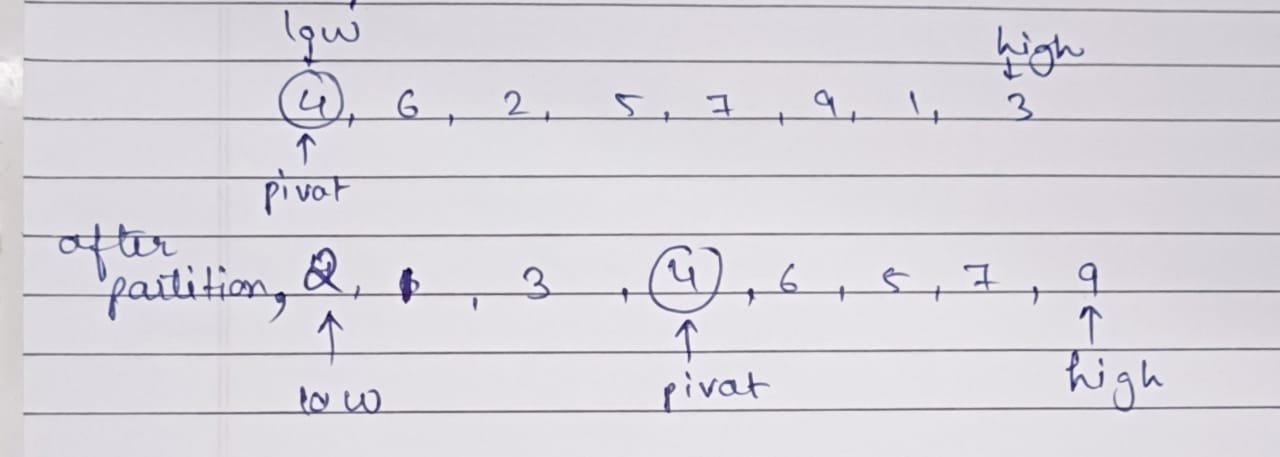 low
high
4, 6, 2, 5, 7, 9, 1, 3
pivat
after
partition, 2, 1, 3, 4, 6, 5, 7, 9
low
pivat
high